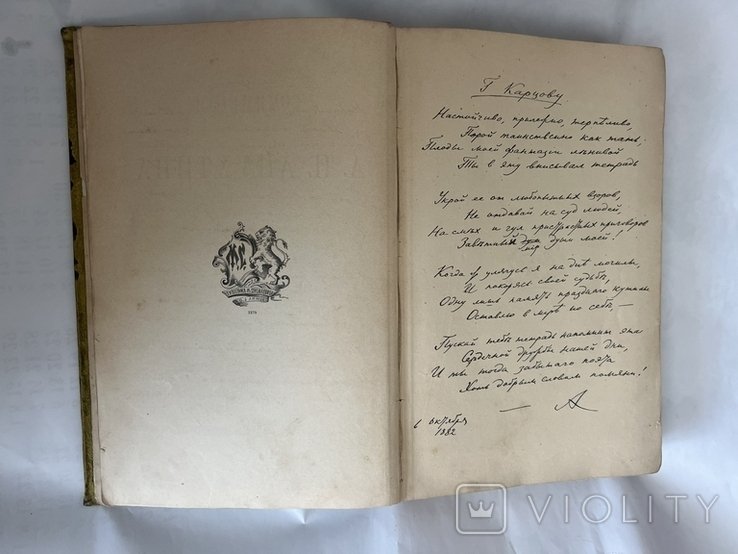 Г Карцову
Настойчиво, прилежно, терпѣливо,
Порой таинственно как тать,
Плоды моей фантазии лѣнивой
Ты в эту вписывал тетрадь
Укрой ее от любопытных взоров,
Не отдавай на суд людей,
На смѣх и гул пристрастных приговоров
Завѣтный мір души моей!
Когда улягусь я на днѣ могилы,
И покорясь своей судьбѣ,
Одну лишь память праздного
Оставлю в мірѣ по себѣ,—
Пускай тебѣ тетрадь напомнит эта
Сердечной дружбы нашей дни,
И ты тогда забытого поэта
Хоть добрым словом помяни!
— А
6 октября
1882
VIOLITY